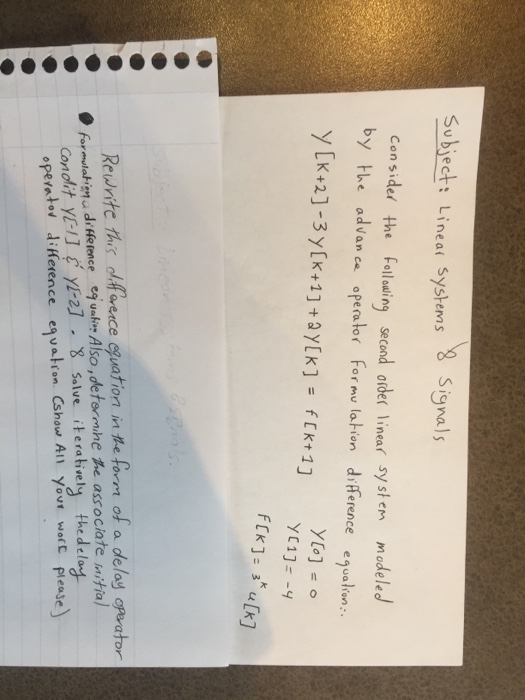 Subject: Linear Systems & Signals
consider the following second order linear system modeled
by the advance operator formulation difference equation:.
y[k+2]-3y[k+1]+2y[k] = f[k+1] y[0] = 0
y[1] = -4
f[k] = 3ᵏ u[k]
Rewrite this difference equation in the form of a delay operator
formulation difference equation Also, determine the associate initial
condit y[-1] & y[-2]. & solve iteratively the delay
operator difference equation (show All your work please)